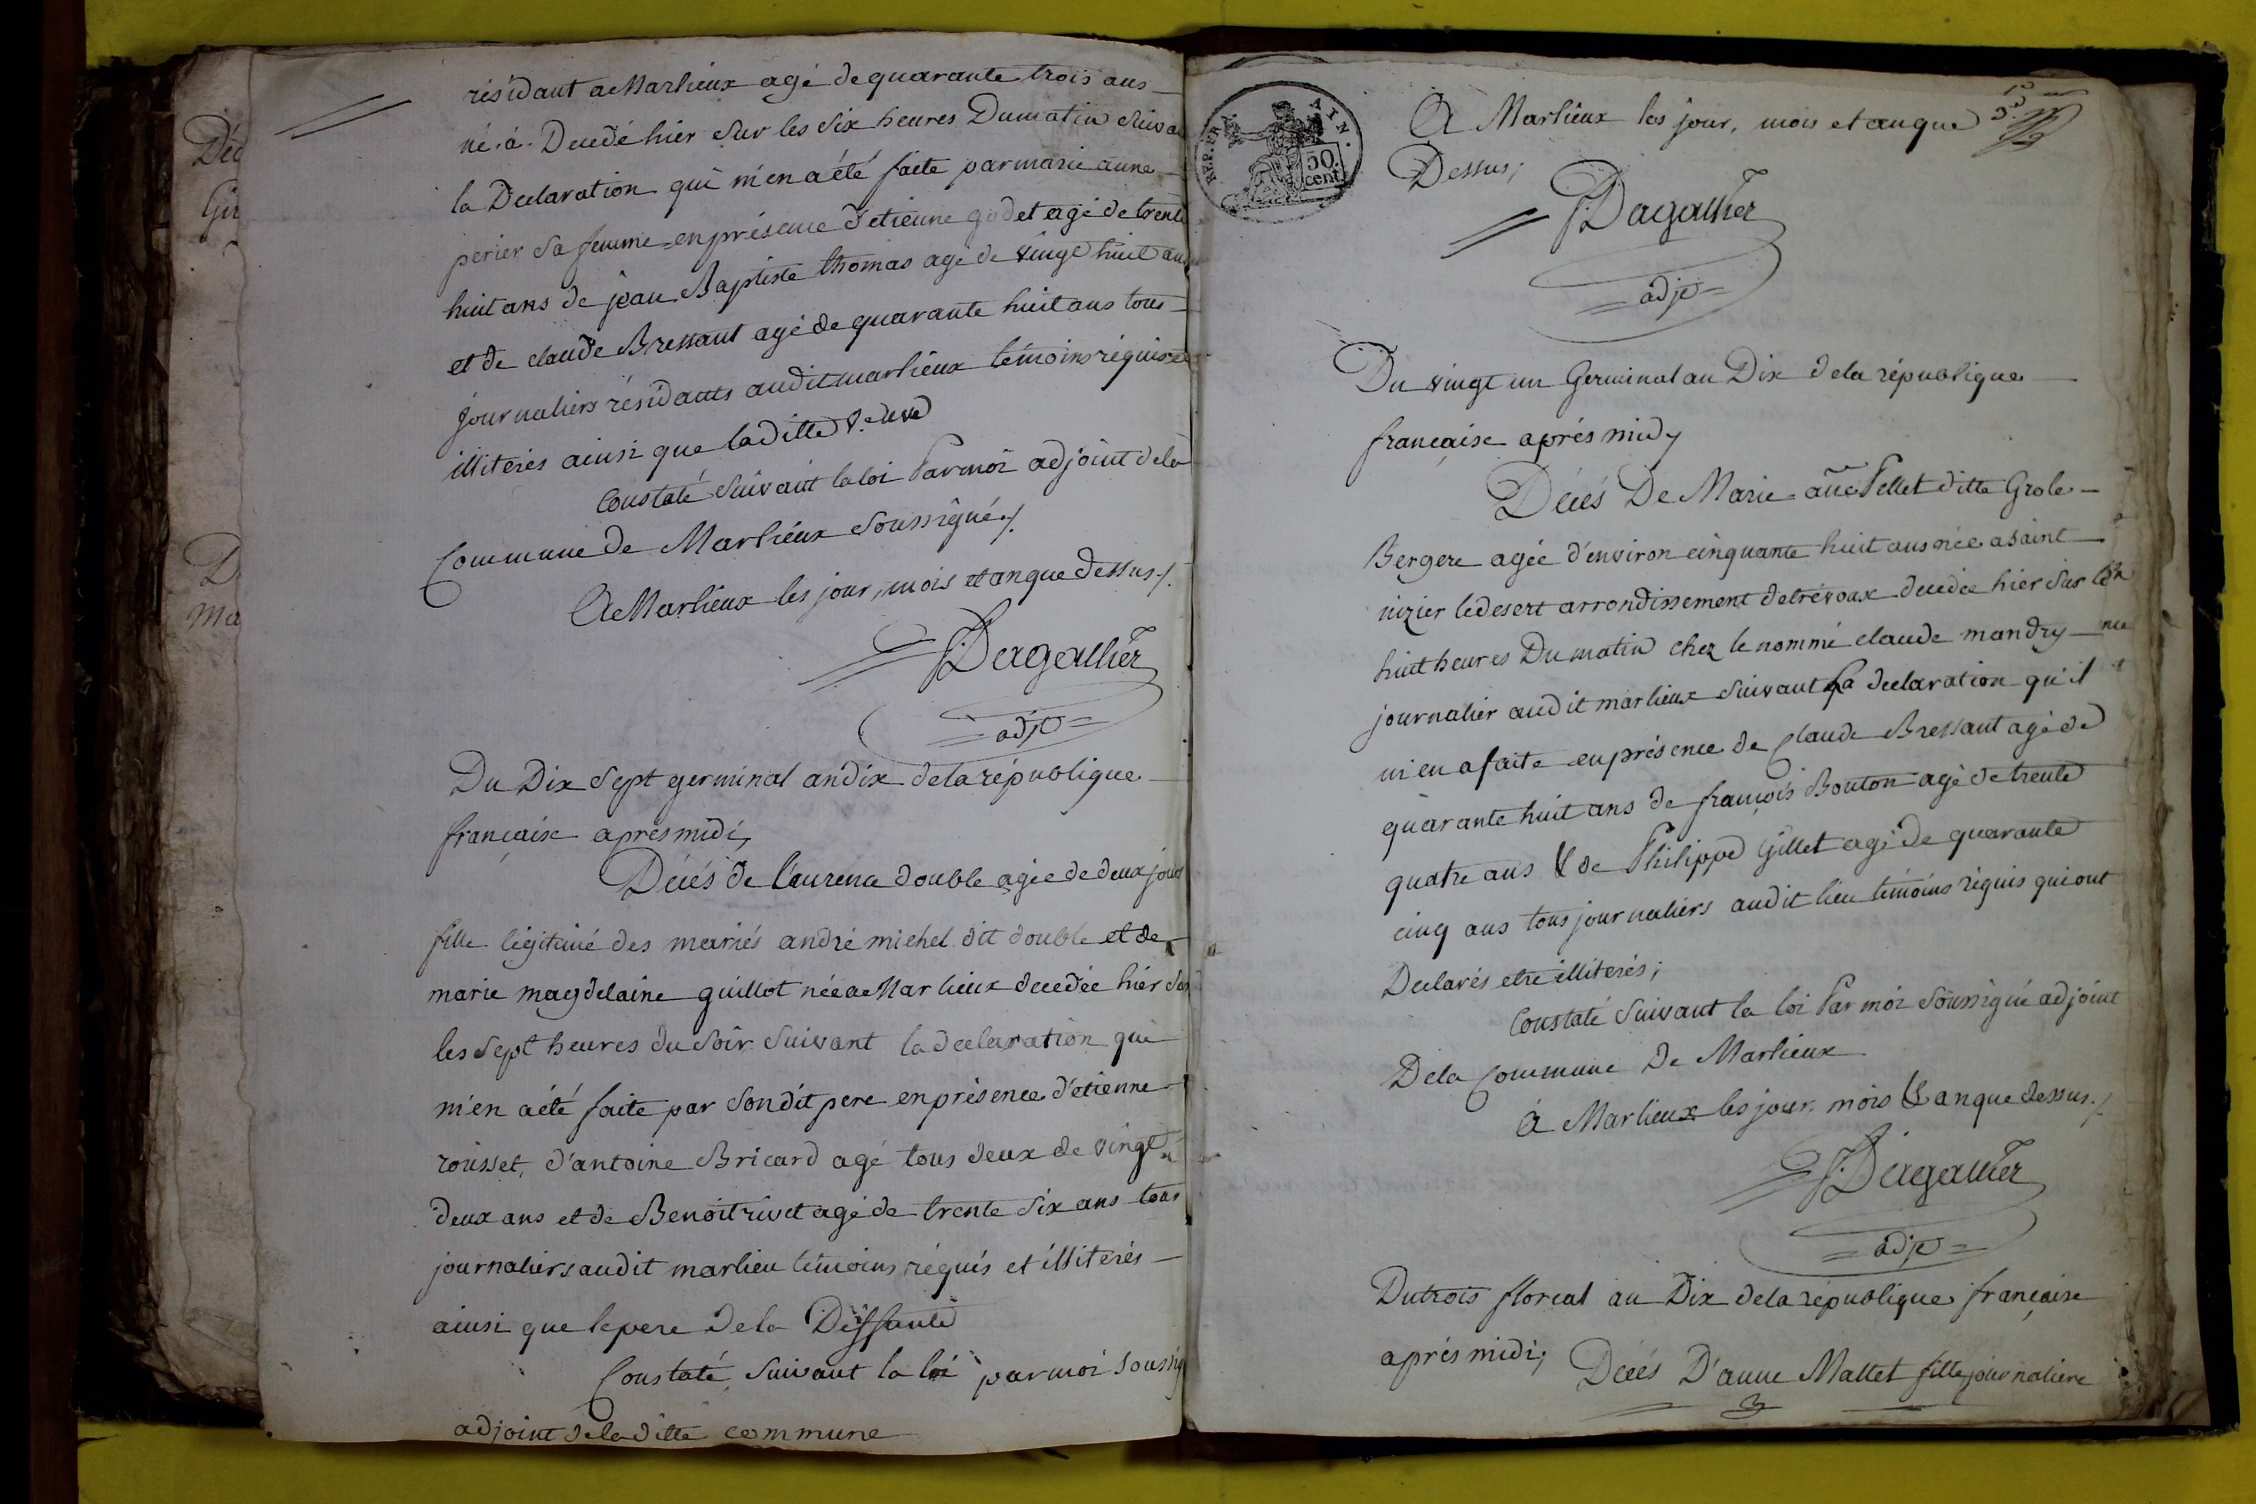 résidant a Marlieux agé de quarante trois ans
né. à. Decedé hier sur les six heures Du matin suivant
la Declaration qui m'en a été faite par marie anne
perier sa femme en présence d'etienne godet agé de trente
huit ans de jean Baptiste thomas agé de vingt huit ans
et de claude Bressant agé de quarante huit ans tous
journaliers résidants audit marlieux témoins réquis et
illiterés ainsi que la ditte veuve
Constaté suivant la loi Par moi adjoint de la
Commune de Marlieux Soussigné./.
A Marlieux les jour, mois et an que dessus./.
Dagallier
adjt
Du Dix Sept germinal an dix de la république
française apres midi,
Décés de Laurence double agée de deux jours
fille légitime des mariés andré michel dit double et de
marie magdelaine guillot née a Marlieux decedée hier sur
les sept heures du soir suivant la declaration qui
m'en a été faite par son dit pere en présence d'etienne
rousset, d'antoine Bricard agé tous deux de vingt
deux ans et de Benoit rivet agé de trente six ans tous
journaliers audit marlieu temoins réquis et illiterés
ainsi que le pere de la Deffunte
Constaté suivant la loi par moi soussig
adjoint de la ditte commune
Déc
D
Ma
REP. FRA.
AIN.
50.
cent.
A Marlieux les jour, mois et an que
Dessus;
Dagallier
adjt
Du vingt un Germinal an Dix de la république
française aprés midy
Décés De Marie anne Pellet ditte Grole
Bergere agée d'environ cinquante huit ans née a saint
nizier le desert arrondissement de trévoux decedée hier sur les
huit heures Du matin chez le nommé claude mandry
journalier audit marlieux suivant la declaration qu'il
m'en a faite en présence de Claude Bressant agé de
quarante huit ans de françois Bouton agé de trente
quatre ans & de Philippe Gillet agé de quarante
cinq ans tous journaliers audit lieu témoins réquis qui ont
Declarés etre illiterés;
Constaté suivant la loi Par moi soussigné adjoint
De la Commune de Marlieux
A Marlieux les jour, mois & an que dessus./.
Dagallier
adjt
Du trois floreal an Dix de la république française
aprés midi;
Décés D'anne Mattet fille journaliere